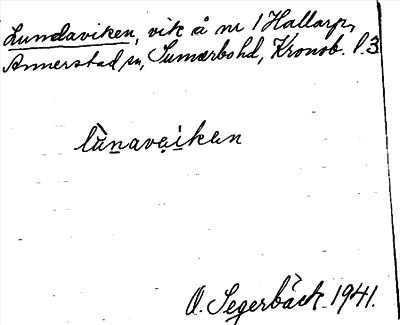 Lundaviken, vik å nr 1 Hallarp,
Annerstad sn, Sunnerbohd, Kronob. l. 3
lùnavaikən
O. Segerbäck 1941.